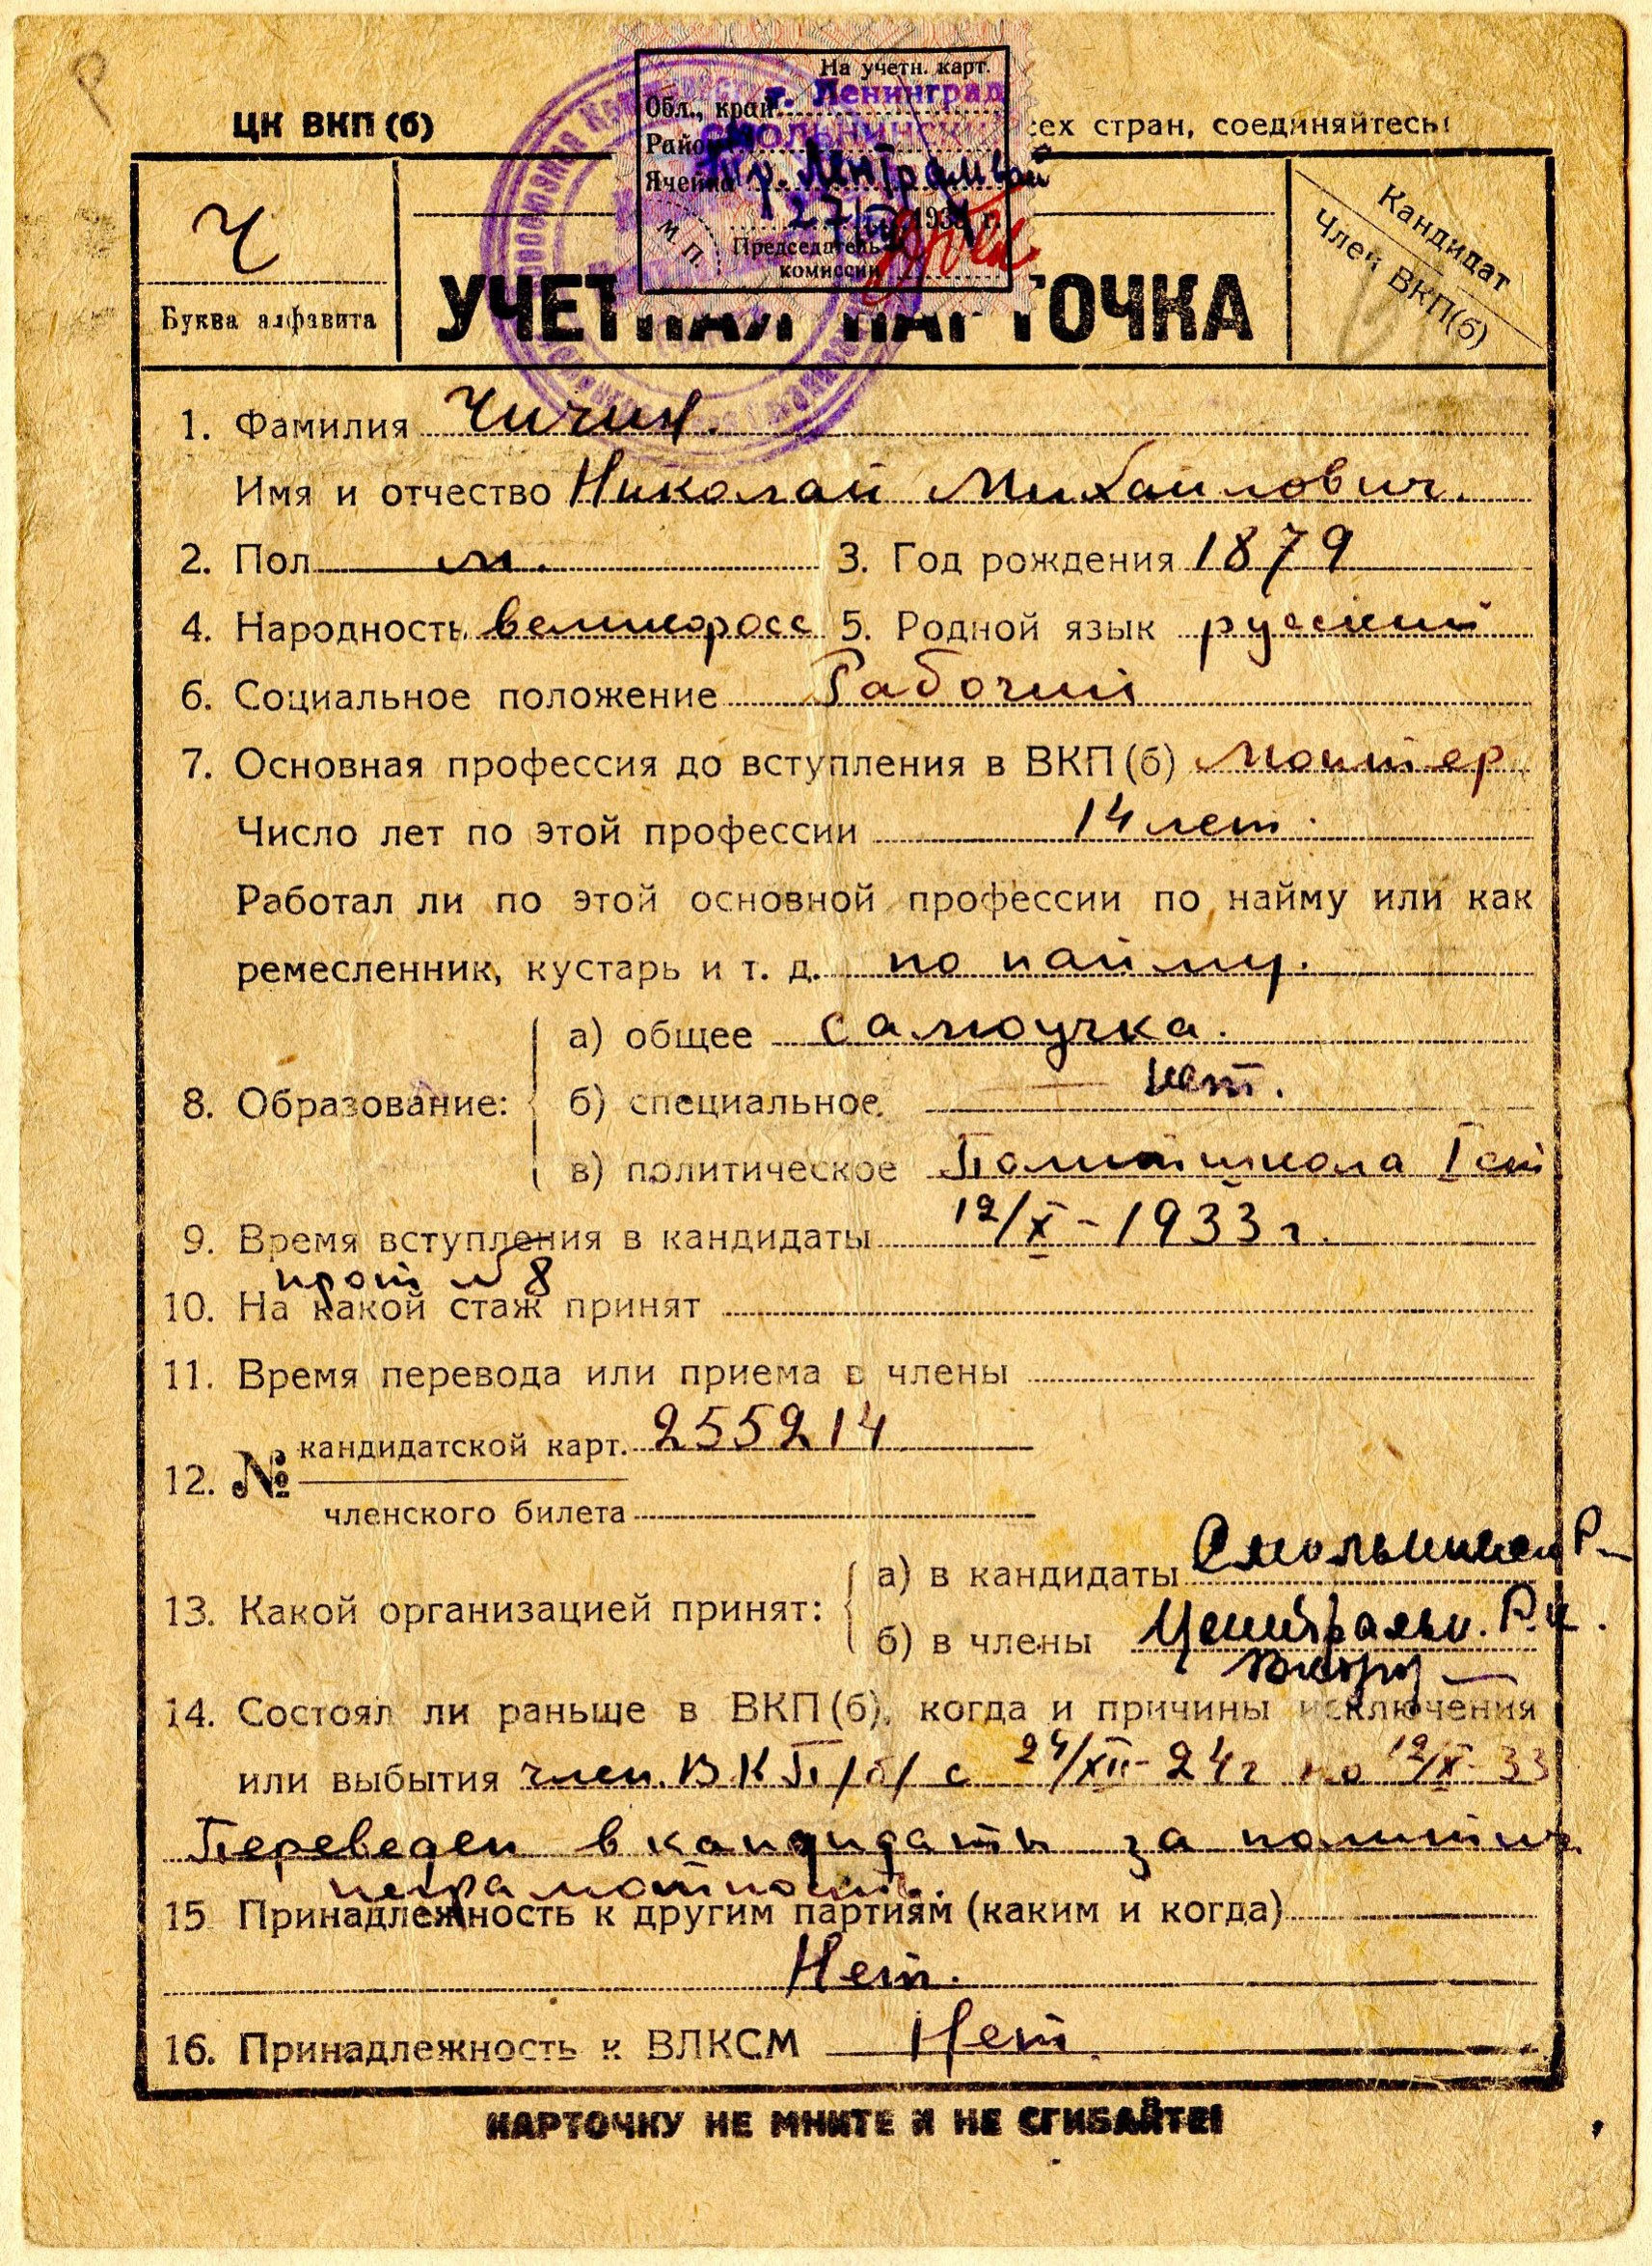 ЦК ВКП(б)
сех стран, соединяйтесь!
На учетн. карт.
Обл., край г. Ленинград
Район Смольнинский
Ячейка Тр. Лентрамвай
27 193 г.
М. П.
Председатель
комиссии
Ч
Буква алфавита
УЧЕТНАЯ КАРТОЧКА
Кандидат
Член ВКП(б)
1. Фамилия Чичин.
Имя и отчество Николай Михайлович.
2. Пол м. 3. Год рождения 1879
4. Народность великоросс 5. Родной язык русский
6. Социальное положение Рабочий
7. Основная профессия до вступления в ВКП(б) Монтер
Число лет по этой профессии 14 лет.
Работал ли по этой основной профессии по найму или как
ремесленник, кустарь и т. д. по найму.
а) общее самоучка.
8. Образование: б) специальное нет.
в) политическое Политшкола I ст
9. Время вступления в кандидаты 12/X-1933 г.
прот № 8
10. На какой стаж принят
11. Время перевода или приема в члены
12. № кандидатской карт. 255214
членского билета
а) в кандидаты Смольнинск Р-
13. Какой организацией принят:
б) в члены Центральн. Р.К.
14. Состоял ли раньше в ВКП(б), когда и причины исключения
или выбытия член ВКП/б/ с 24/XII-24г по 12/X-33
Переведен в кандидаты за политич.
неграмотность.
15 Принадлежность к другим партиям (каким и когда)
Нет.
16. Принадлежность к ВЛКСМ Нет.
КАРТОЧКУ НЕ МНИТЕ И НЕ СГИБАЙТЕ!